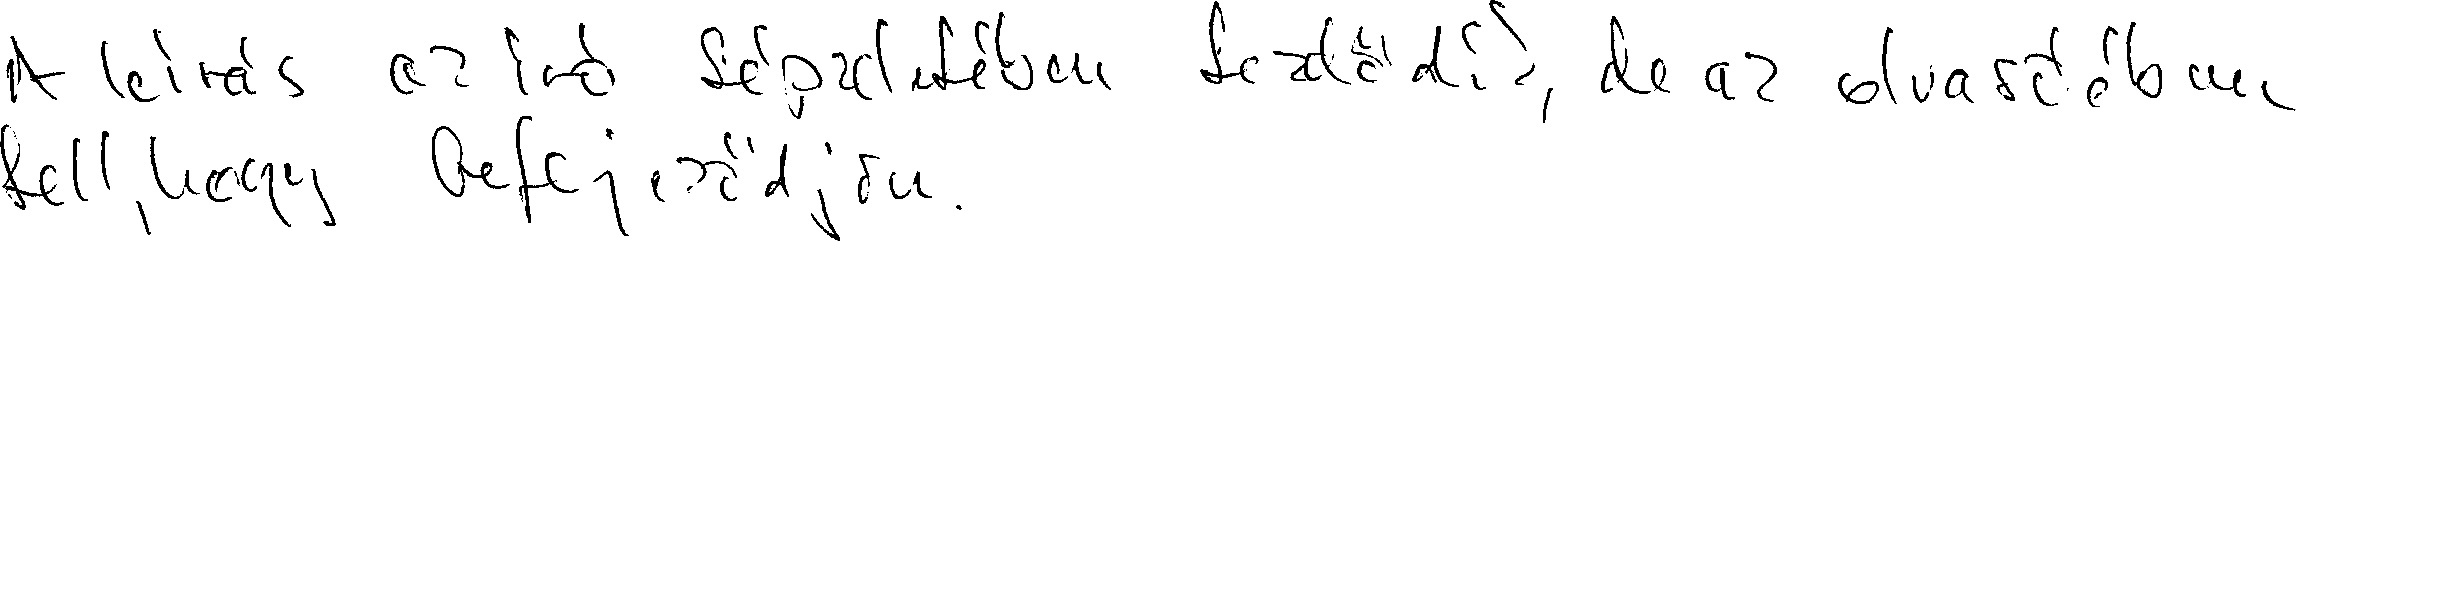 A leírás az író képzeletében kezdődik, de az olvasóéban
kell, hogy befejeződjön.